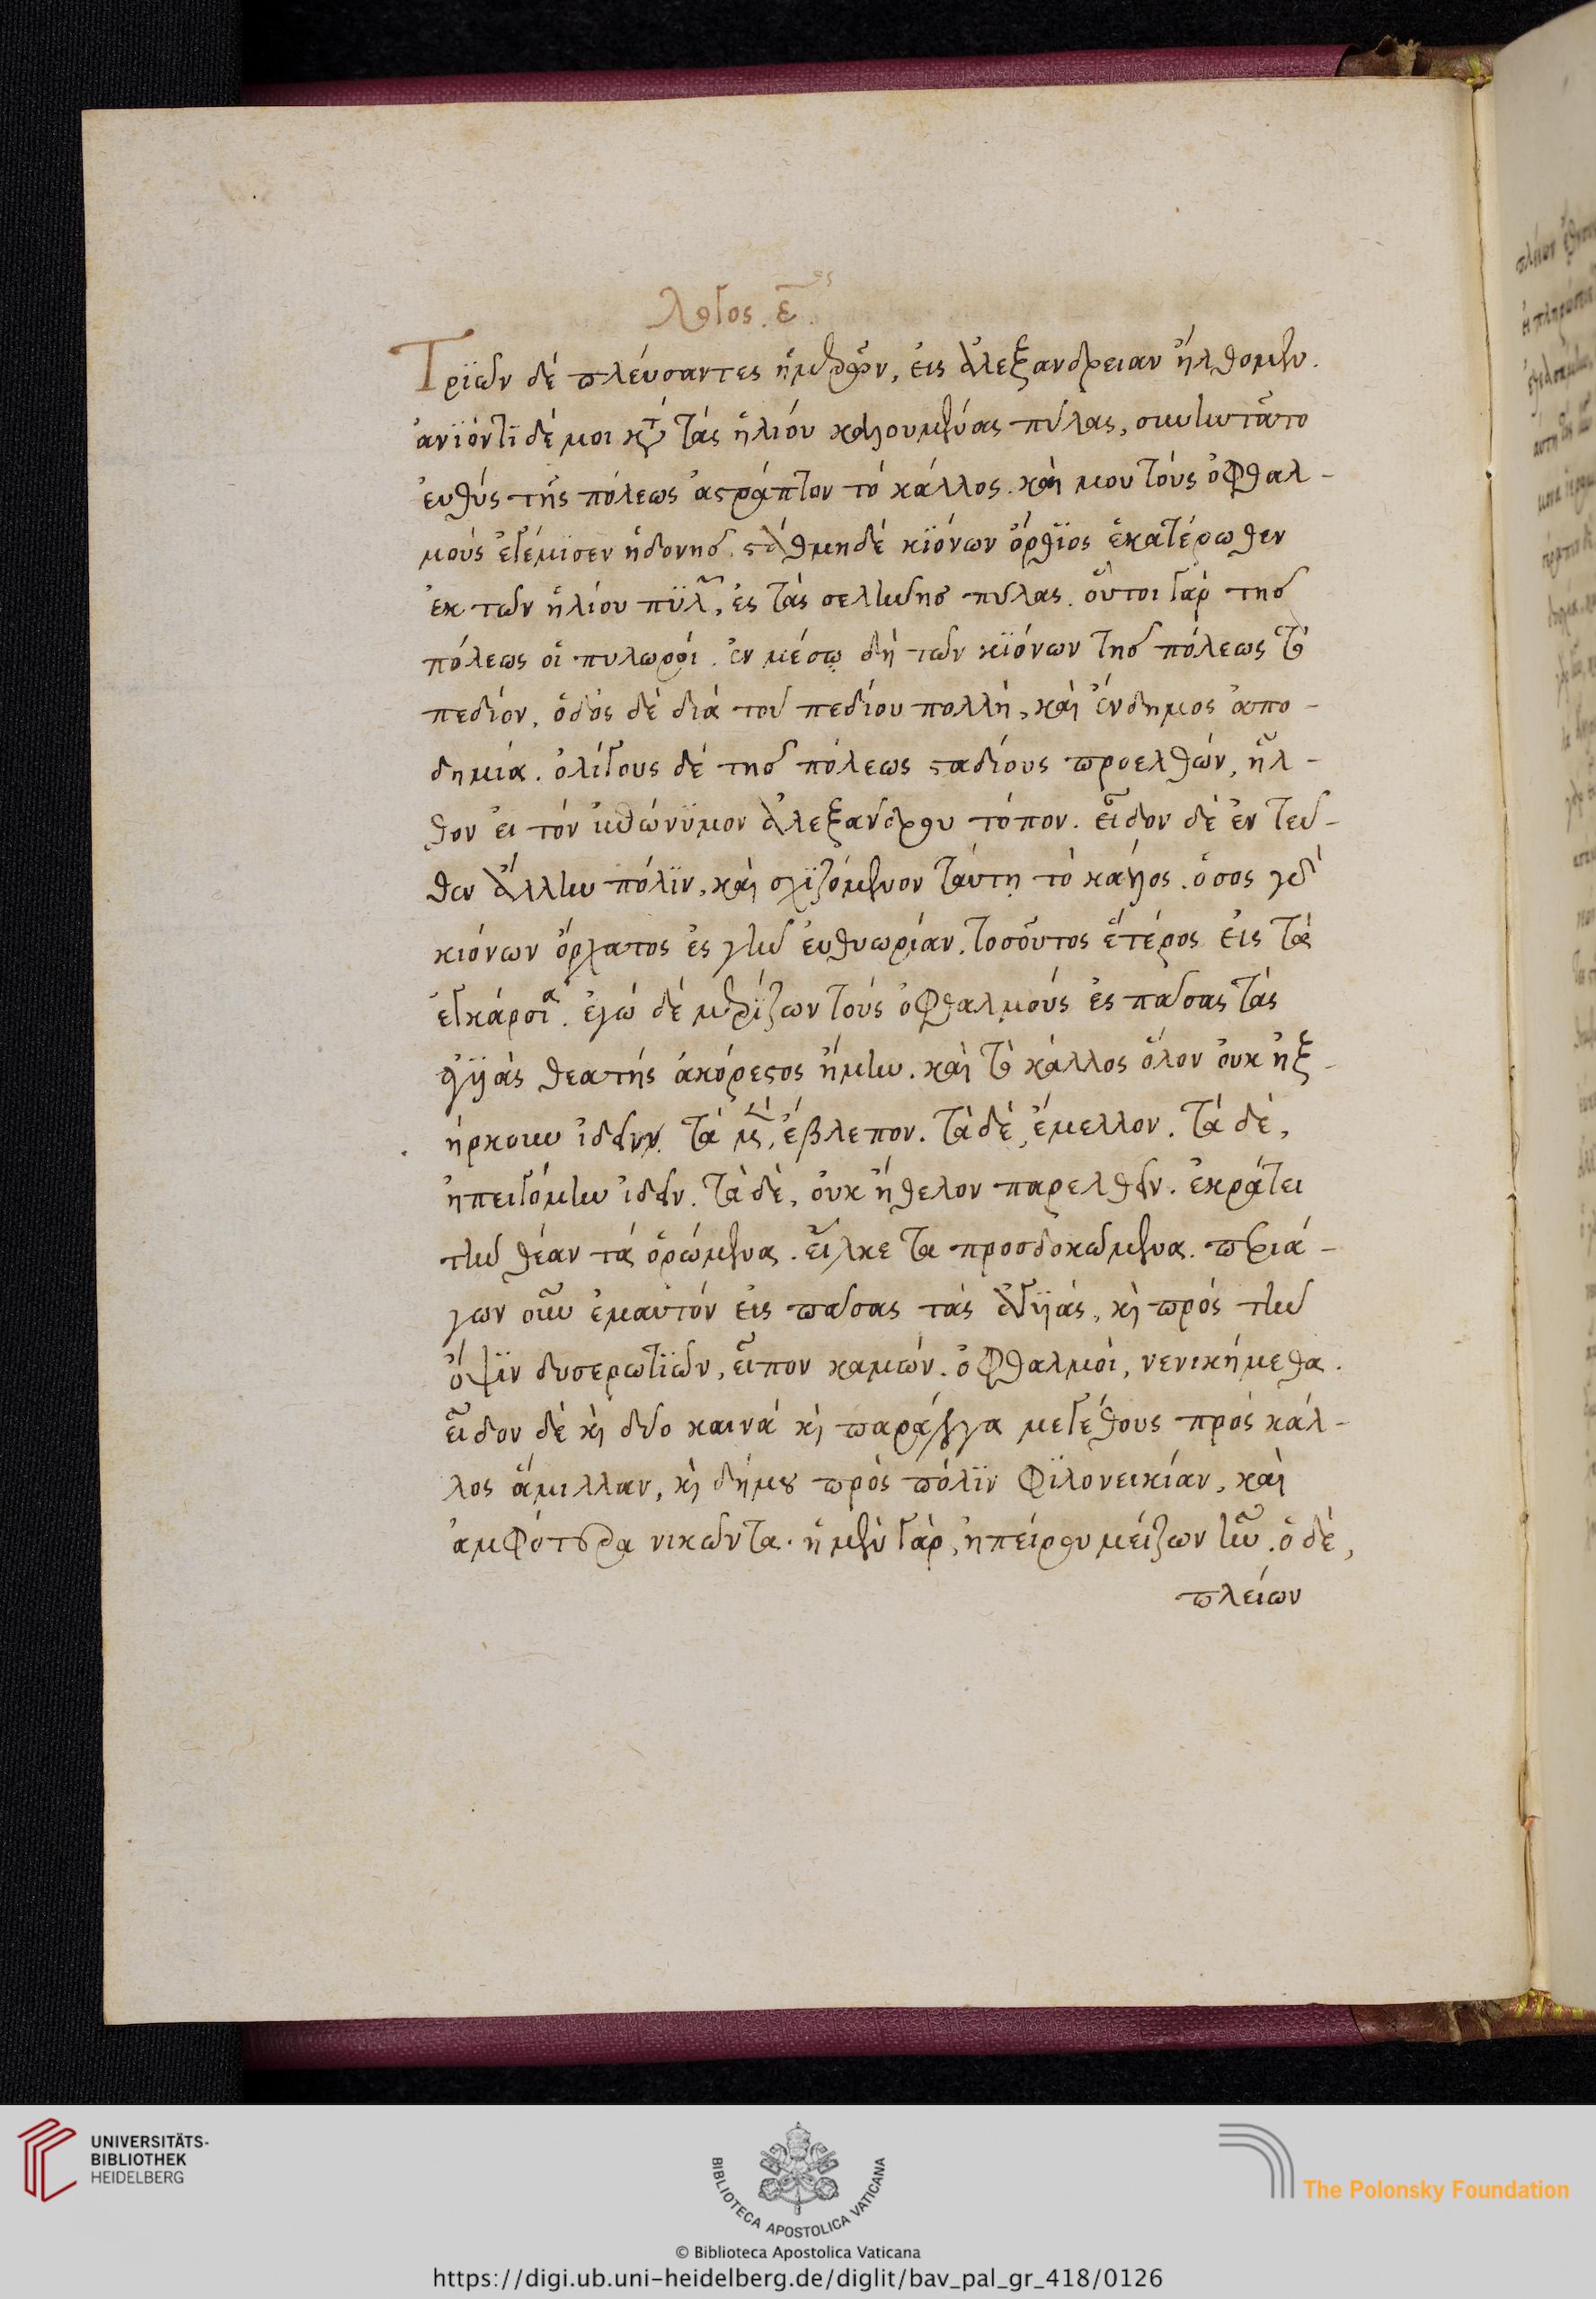 λόγος. ε̄ ος
Τριῶν δὲ πλεύσαντες ἡμερῶν, εἰς ἀλεξανδρειαν ἤλθομεν.
ἀνϊόντϊ δέ μοι κατὰ τὰς ἡλίου καλουμένας πύλας, συνηντᾶτο
ἐυθὺς τῆς πόλεως ἀστράπτον τὸ κάλλος. καὶ μου τοὺς ὀφθαλ-
μοὺς ἐγέμϊσεν ἡδονῆσ. στάθμη δὲ κϊόνων ὄρθϊος ἑκατέρωθεν
ἐκ τῶν ἡλίου πϋλ῀, ἐς τὰς σελήνησ πύλας. οὗτοι γὰρ τῆσ
πόλεως οἱ πυλωροί. ἐν μέσω δὴ τῶν κϊόνων τῆσ πόλεως τὸ
πεδίον, ὁδὸς δὲ διὰ τοῦ πεδίου πολλὴ, καὶ ἔνδημος ἀπο-
δημία. ὀλίγους δὲ τῆσ πόλεως σταδίους προελθὼν, ἦλ-
θον ἐι τὸν ἐπώνϋμον ἀλεξάνδρου τόπον. εἶδον δὲ ἐν τεῦ-
θεν ἄλλην πόλϊν, καὶ σχϊζόμενον ταύτη τὸ κάλλος. ὅσος γὰρ
κιόνων ὄρχατος ἐς τὴν ἐυθυωρίαν, τοσοῦτος ἕτέρος ἐις τὰ
ἐγκάρσϊα. ἐγὼ δὲ μερίζων τοὺς ὀφθαλμοὺς ἐς πάσας τὰς
ἀγϋιὰς θεατὴς ἀκόρεστος ἤμην. καὶ τὸ κάλλος ὅλον ὀυκ ἠξ-
ήρκουν ἰδεῖν. τὰ μὲν, ἔβλεπον. τὰ δὲ, ἔμελλον. τὰ δὲ,
ἠπειγόμην ἰδεῖν. τὰ δὲ, ὀυκ ἤθελον παρελθεῖν. ἐκράτει
τὴν θέαν τὰ ὁρώμενα. εἷλκε τὰ προσδοκώμενα. περιά-
γων οὖν ἐμαυτὸν ἐις πάσας τὰς ἀγϋιὰς, κὶ πρὸς τὴν
ὄψϊν δυσερωτϊῶν, εἶπον καμών. ὀφθαλμοὶ, νενικήμεθα.
εἶδον δὲ κὶ δύο καινὰ κὶ παράλογα μεγέθους πρὸς κάλ-
λος ἅμιλλαν, κὶ δήμου πρὸς πόλϊν φϊλονεικίαν, καὶ
ἀμφότερα νικῶντα. ἡ μὲν γὰρ, ἠπείρου μείζων ἦν. ὁ δὲ,
πλείων
UNIVERSITÄTS-
BIBLIOTHEK
HEIDELBERG
BIBLIOTECA APOSTOLICA VATICANA
The Polonsky Foundation
© Biblioteca Apostolica Vaticana
https://digi.ub.uni-heidelberg.de/diglit/bav_pal_gr_418/0126